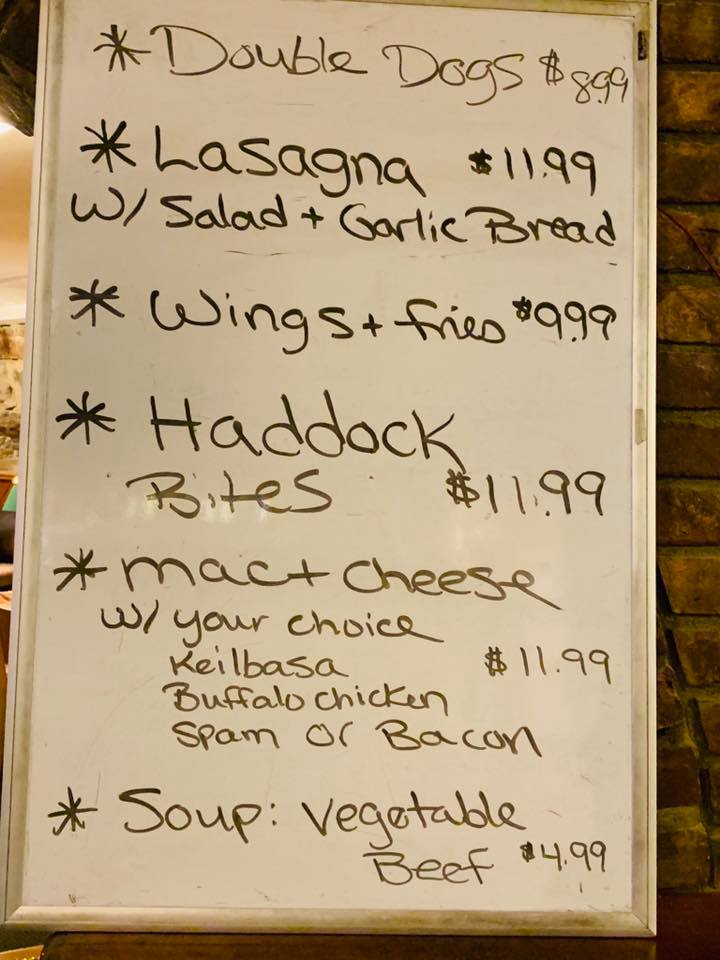 * Double Dogs $8.99
* Lasagna $11.99
w/ Salad + Garlic Bread
* Wings + fries $9.99
* Haddock
Bites $11.99
* mac + cheese
w/ your choice
Keilbasa $11.99
Buffalo chicken
Spam or Bacon
* Soup: vegetable
Beef $4.99